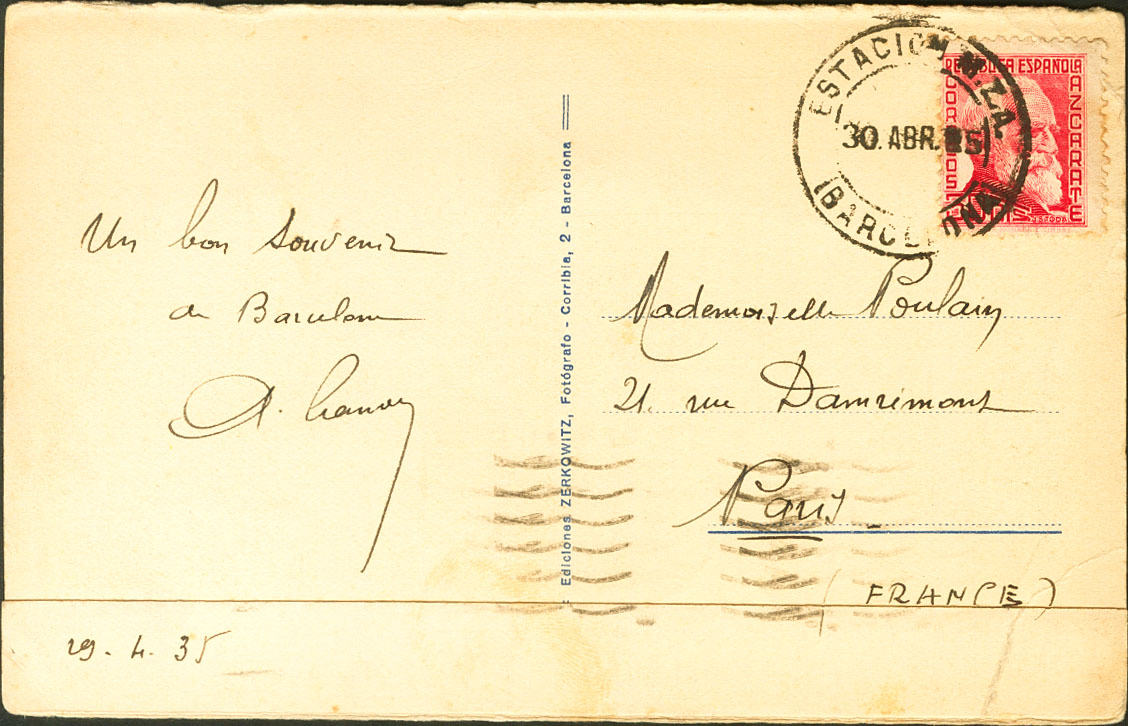 ESTACION M.Z.A.
30. ABR. 35
(BARCELONA)
REPUBLICA ESPAÑOLA
CORREOS
AZCARATE
30 CTS
Un bon souvenir
de Barcelone
A.
29. 4. 35
= Ediciones ZERKOWITZ, Fotógrafo - Corribia, 2 - Barcelona =
Mademoiselle Poulain
21. rue Damrémont
Paris
(FRANCE)